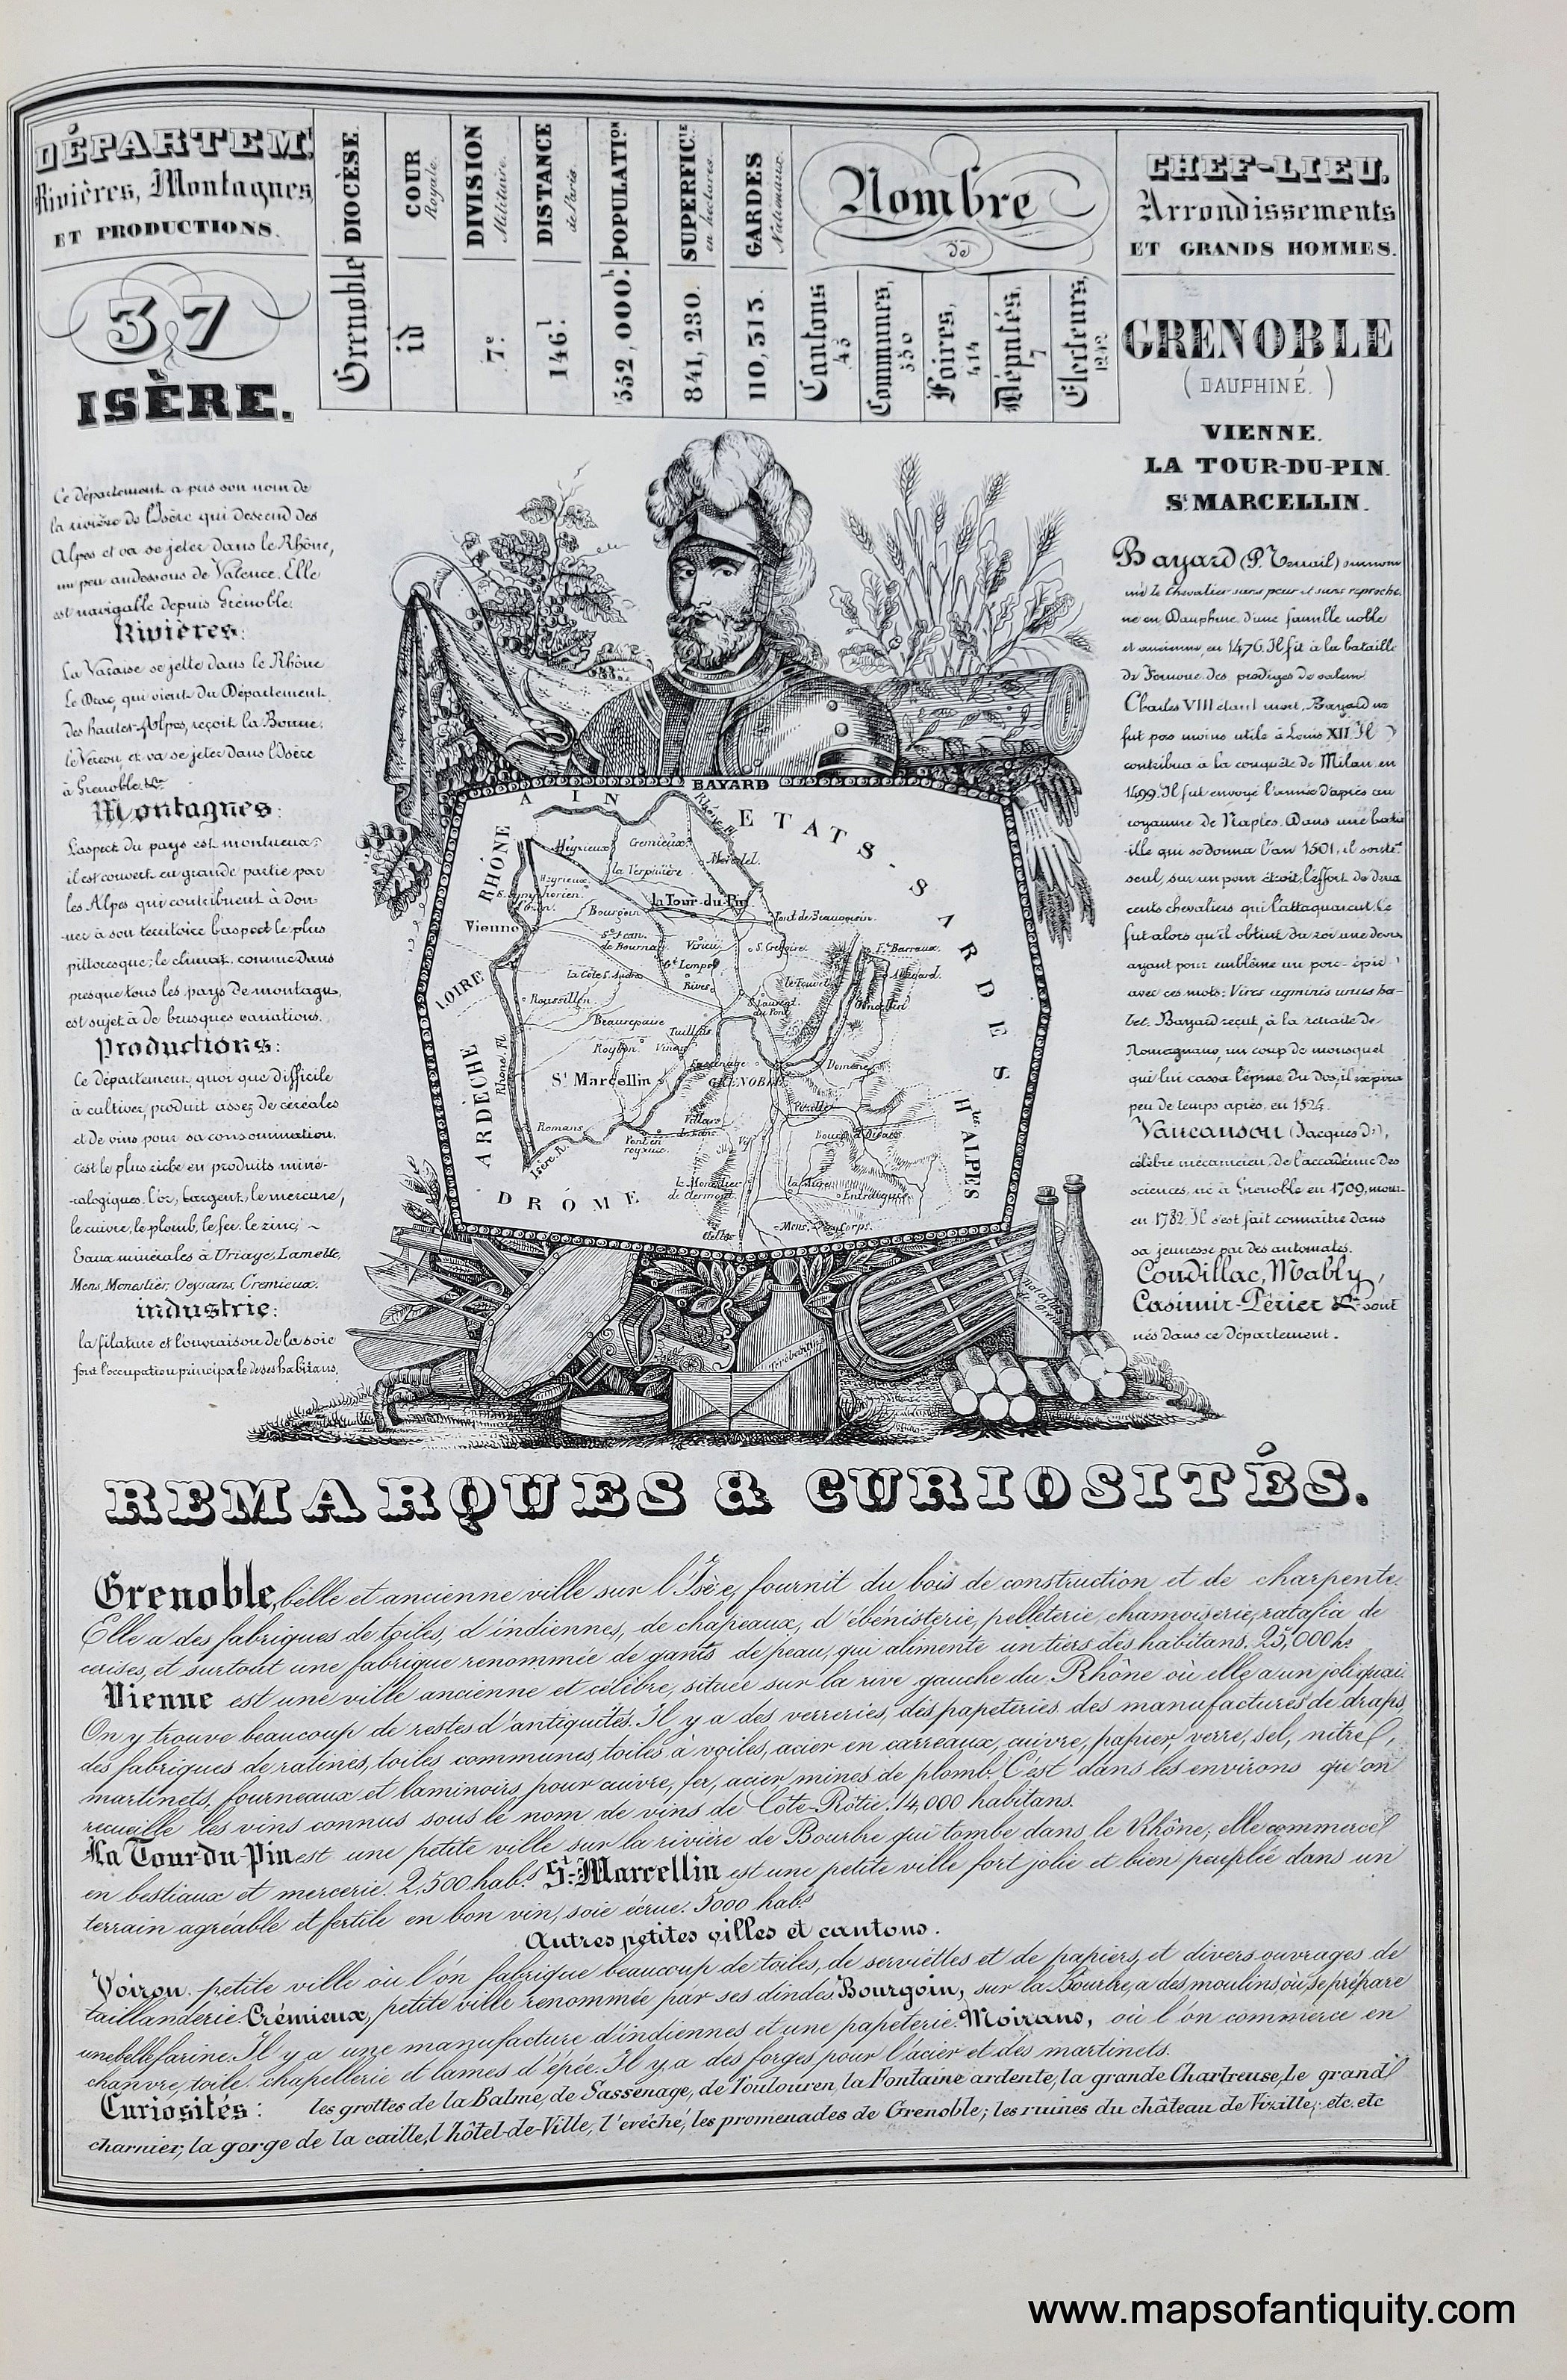 DÉPARTEM.t
Rivières, Montagnes,
ET PRODUCTIONS.
37
ISÈRE.
DIOCÈSE
Grenoble
COUR
Royale.
id
DIVISION
Militaire.
7e.
DISTANCE
de Paris.
146 l.
POPULATION
552,000 h.
SUPERFICIE
en hectares.
841,230.
GARDES
Nationaux.
110,313.
Nombre
de
Cantons
45
Communes,
550
Foires,
414
Députés,
7
Electeurs,
CHEF-LIEU.
Arrondissements
ET GRANDS HOMMES.
GRENOBLE
(DAUPHINÉ.)
VIENNE.
LA TOUR-DU-PIN.
St MARCELLIN.
Ce département a pris son nom de
la rivière de l'Isère qui descend des
Alpes et va se jeter dans le Rhône,
un peu audessous de Valence. Elle
est navigable depuis Grenoble.
Rivières:
La Varaise se jette dans le Rhône
Le Drac, qui vient du Département
des hautes-Alpes, reçoit la Bonne,
et va se jeter dans l'Isère
à Grenoble &a.
Montagnes:
L'aspect du pays est montueux;
il est couvert en grande partie par
les Alpes qui contribuent à don-
-ner à son territoire l'aspect le plus
pittoresque; le climat, comme dans
presque tous les pays de montagn,
est sujet à de brusques variations.
Productions:
Ce département, quoi que difficile
à cultiver, produit assez de céréales
et de vins pour sa consommation.
c'est le plus riche en produits miné-
-ralogiques. l'or, l'argent, le mercure,
le cuivre, le plomb, le fer, le zinc, ~
Eaux minérales à Uriage, Lamotte,
Mens, Monestier, Oeysans, Cremieux.
industrie:
la filature et l'ouvraison de la soie
font l'occupation principale de ses habitans.
Bayard (P. Terrail) surnom
mé le Chevalier sans peur et sans reproche.
né en Dauphiné, d'une famille noble
et ancienne, en 1476. Il fit à la bataille
de Fornoue des prodiges de valeur.
Charles VIII étant mort, Bayard ne
fut pas moins utile à Louis XII. Il
contribua à la conquête de Milan, en
1499. Il fut envoyé l'année d'après au
royaume de Naples. Dans une bata
ille qui se donna l'an 1501, il soutt
seul, sur un pont étroit, l'effort de deux
cents chevaliers qui l'attaquaient. Ce
fut alors qu'il obtint du roi une devi
ayant pour emblême un porc-épic
avec ces mots: Vires agminis unus ha-
bet. Bayard reçut, à la retraite de
Romagnano, un coup de mousquet
qui lui cassa l'épine du dos, il expira
peu de temps après, en 1524.
Vaucanson (Jacques de),
célèbre mécanicien, de l'accadémie des
sciences, né à Grenoble en 1709, mour-
en 1782. Il s'est fait connaitre dans
sa jeunesse par des automates.
Condillac, Mably,
Casimir-Périer &a sont
nés dans ce Département.
BAYARD
AIN
ETATS-SARDES
RHÔNE
LOIRE
ARDÈCHE
DRÔME
Htes ALPES
Rhône Fl.
Rhône, Fl.
Isère R.
Heyrieux
Cremieux
Morestel
la Verpilière
Heyrieux
S. Symphorien
Vienne
Bourgoin
la Tour-du-Pin
Pont de Beauvoisin
St Jean
de Bournay
Virieu
S. Geoire
Ft Barraux
Gd Lemps
Rives
le Touvet
Allevard
la Côte S. André
S. Laurent
du Pont
Goncelin
Roussillon
Beaurepaire
Tullins
Roybon
Vinay
Sassenage
GRENOBLE
Domène
St Marcellin
Vizille
Villars
de Lans
Vif
Bourg d'Oisans
Romans
Pont en
royans
le Monestier
de Clermont
la Mure
Entraigues
Mens
Corps
Clelles
Térébenthine
Ratafia
REMARQUES & CURIOSITÉS.
Grenoble, belle et ancienne ville sur l'Isère, fournit du bois de construction et de charpente.
Elle a des fabriques de toiles, d'indiennes, de chapeaux, d'ébénisterie, pelleterie, chamoiserie, ratafia de
cerises, et surtout une fabrique renommée de gants de peau, qui alimente un tiers des habitans. 25,000 hs
Vienne est une ville ancienne et célèbre, située sur la rive gauche du Rhône où elle a un joli quai.
On y trouve beaucoup de restes d'antiquités. Il y a des verreries, des papeteries des manufactures de draps,
des fabriques de ratines, toiles communes, toiles à voiles, acier en carreaux, cuivre, papier, verre, sel, nitre,
martinets, fourneaux et laminoirs, pour cuivre, fer, acier, mines de plomb. C'est dans les environs qu'on
recueille les vins connus sous le nom de vins de Côte-Rôtie. 14,000 habitans.
La Tour-du-Pin est une petite ville sur la rivière de Bourbre qui tombe dans le Rhône; elle commerce
en bestiaux et mercerie. 2,500 habs. St-Marcellin est une petite ville fort jolie et bien peuplée dans un
terrain agréable et fertile en bon vin, soie écrue. 5000 habs
Autres petites villes et cantons.
Voiron. petite ville où l'on fabrique beaucoup de toiles, de serviettes et de papiers, et divers ouvrages de
taillanderie. Crémieux, petite ville renommée par ses dindes. Bourgoin, sur la Bourbre, a des moulins où se prépare
une belle farine. Il y a une manufacture d'indiennes et une papeterie. Moirans, où l'on commerce en
chanvre, toile, chapellerie et lames d'épée. Il y a des forges pour l'acier et des martinets.
Curiosités: les grottes de la Balme, de Sassenage, de Toulouren, la Fontaine ardente, la grande Chartreuse, Le grand
charnier, la gorge de la caille, l'hôtel-de-Ville, l'evêché, les promenades de Grenoble; les ruines du château de Vizille; etc. etc
www.mapsofantiquity.com